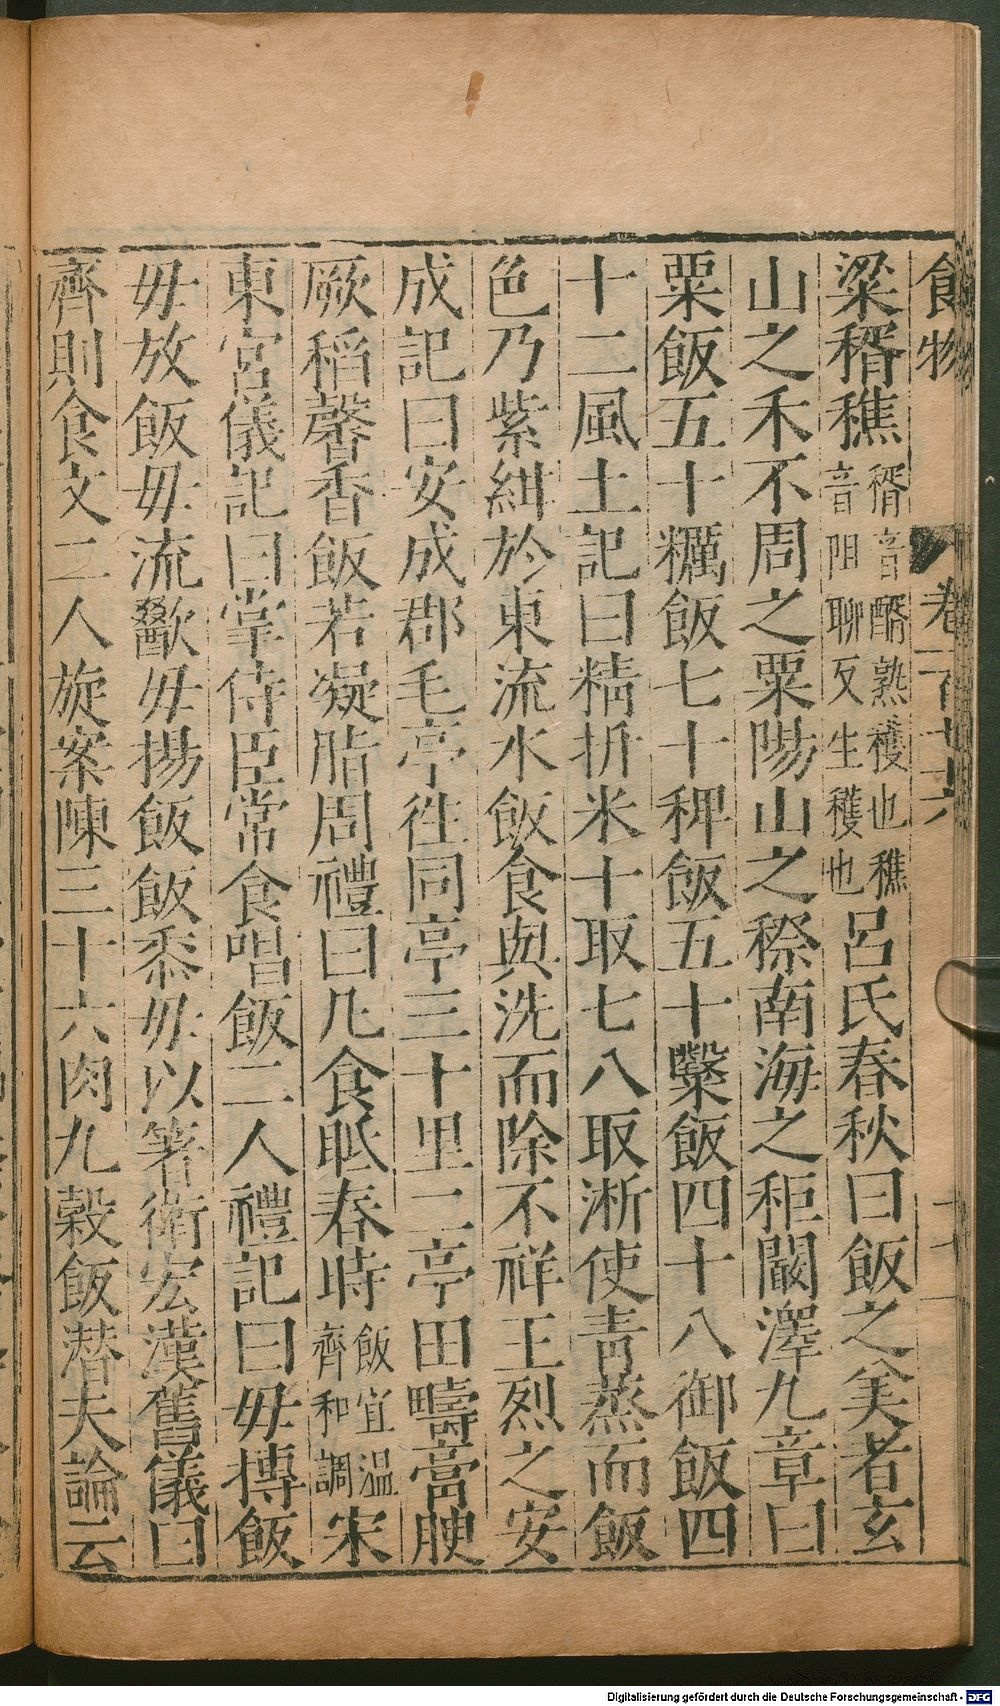 食物 卷一百十六
粱稰穛稰音醑熟穫也穛音阻聊反生穫也呂氏春秋曰飯之美者玄
山之禾不周之粟陽山之穄南海之秬闞澤九章曰
粟飯五十糲飯七十稗飯五十糳飯四十八御飯四
十二風土記曰精折米十取七八取淅使青蒸而飯
色乃紫紺於東流水飯食與洗而除不祥王烈之安
成記曰安成郡毛亭徃同亭三十里二亭田疇膏腴
厥稻馨香飯若凝脂周禮曰凡食眡春時飯宜温齊和調宋
東宮儀記曰掌侍臣常食唱飯二人禮記曰毋摶飯
毋放飯毋流歠毋揚飯飯黍毋以箸衛宏漢舊儀曰
齊則食文二人旋案陳三十六肉九穀飯潜夫論云
Digitalisierung gefördert durch die Deutsche Forschungsgemeinschaft - DFG